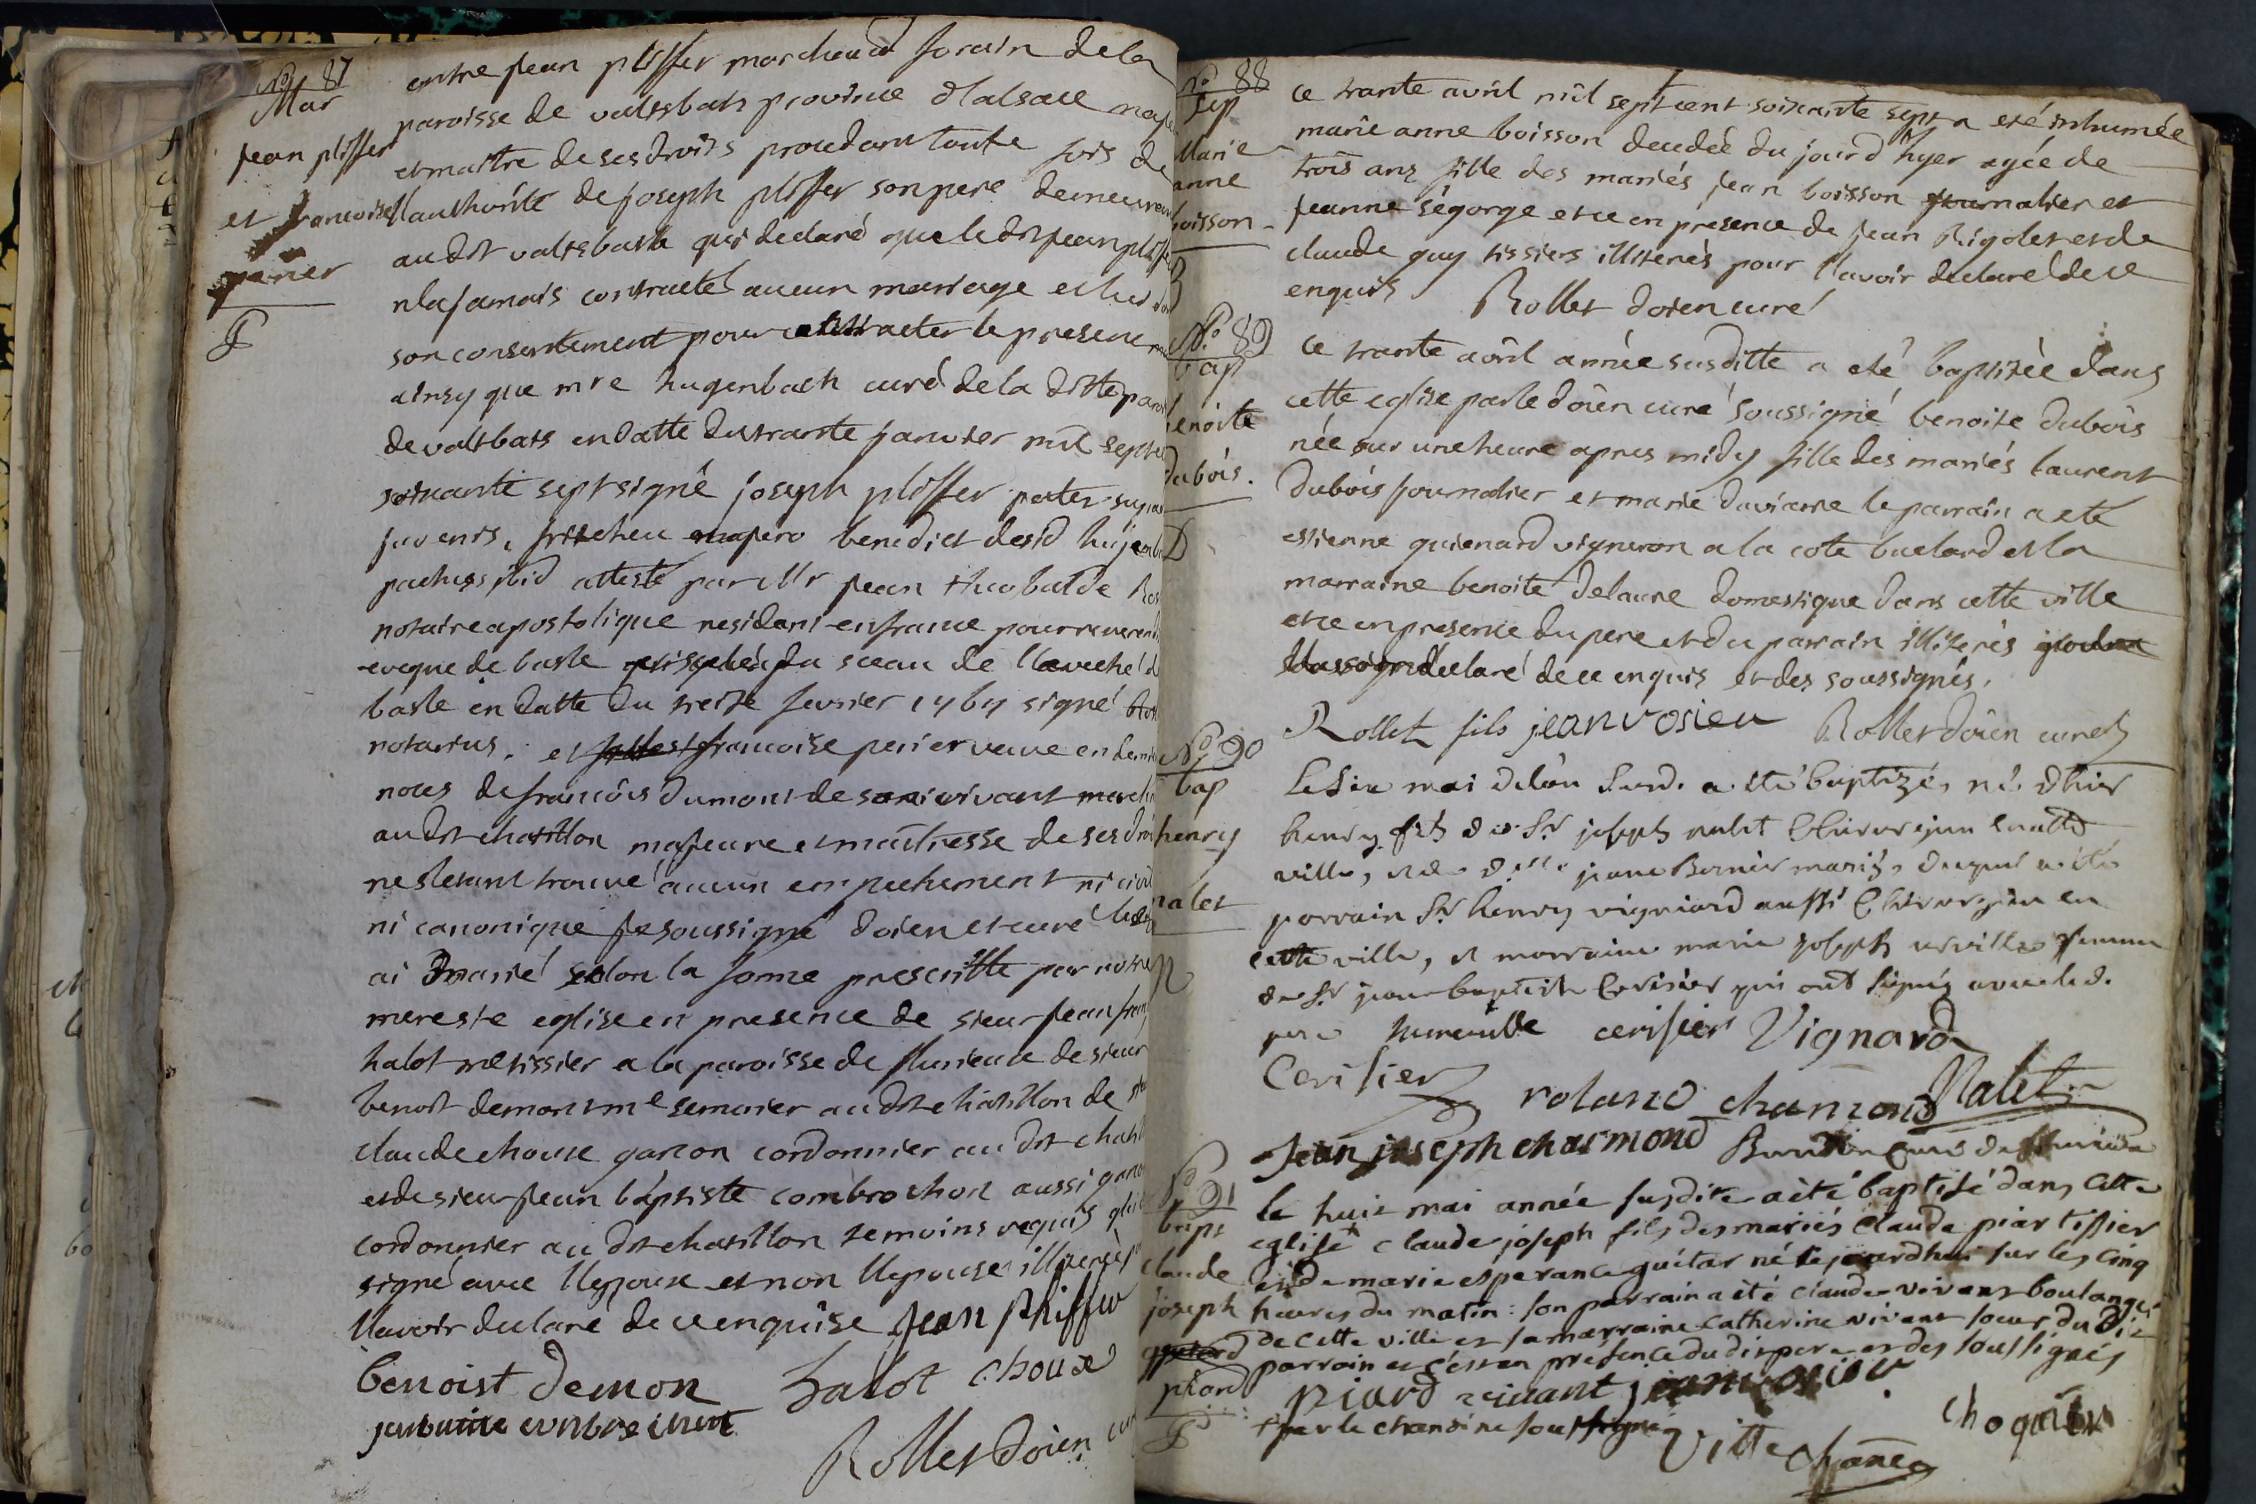 No 87
Mar
jean pliffer
et francoise
perier
P
entre jean pliffer marchand forain de la
paroisse de valtsbach province d'alsace maje
et maitre de ses droits procedant toute fois de
l'authorité de joseph pliffer son pere demeurant
au dit valtsbach qui declaré que le dit jean pliffer
n'a jamais contracté aucun mariage et lui
son consentement pour contracter le present
ainsy que mre hugenbach curé de la ditte paroi
de valtsbats en datte du trante janvier mil sept
soixante sept signé joseph pliffer pater
juvenis benedict
ibid attesté par Mr jean theobalde
notaire apostolique residant en france pour reverend
eveque de basle du sceau de l'eveché de
basle en datte du treize fevrier 1767 signé
notarius. et francoise perier veuve en derni
noces de francois dumont de son vivant march
au dit chatillon majeure et maitresse de ses droi
ne s'etant trouvé aucun empechement ni civil
ni canonique je soussigné doien et curé
ai marié selon la forme prescritte par notre
mere ste eglise en presence de sieur jean fran
halot me tissier a la paroisse de flurieux de sieur
benoit demont me semurier au dit chatillon de
claude chouse garcon cordonnier au dit chati
et de sieur jean baptiste combrochon aussi garcon
cordonnier au dit chatillon temoins requis qui
signé avec l'epoux et non l'epouse illiteré
l'avoir declaré de ce enquise jean Phiffer
benoist Demon halot choux
Rollet doien curé
No 88
sep
Marie
anne
boisson
ce trante avril mil sept cent soixante sept a eté inhumée
marie anne boisson decedée du jour d'hyer agée de
trois ans fille des mariés jean boisson journalier et
jeanne segorge et ce en presence de jean Rigolet et de
claude guy tissiers illiterés pour l'avoir declaré de ce
enquis Rollet doien curé
No 89
bap
benoite
dubois.
D
ce trante avril année susditte a eté baptisée dans
cette eglise par le doien curé soussigné benoite dubois
née sur une heure apres midy fille des mariés laurent
dubois journalier et marie daviane le parrain a eté
estienne guienard vigneron a la cote buelard et la
marraine benoite delaune domestique dans cette ville
et ce en presence du pere et du parrain illiterés
declaré de ce enquis et des soussignés.
Rollet fils jean vosieu Rollet doien curé
No 90
bap
henry
nalet
N
Le six mai de l'an susd. a été baptizé, né d'hier
henry fils de Sr joseph nalet Chirurgien en cette
ville, et de dlle jeanne Bernier mariés, duquel a été
parrain Sr henry vigniard aussi Chirurgien en
cette ville, et marraine marie joseph urville femme
de Sr jean baptiste Cerisier qui ont signés avec led.
pere hureville cerisier Vignard
Cerisier roland chamond Nalet
Jean joseph charmond
No 91
bapt
claude
joseph
piard
P
le huit mai année susdite a été baptisé dans cette
eglise + claude joseph fils des mariés claude piar tissier
et de marie esperance guitar né le jourdhui sur les cinq
heures du matin: son parrain a été claude vivant boulanger
de cette ville et sa marraine catherine vivant soeur du dit
parrain et c'est en presence du dit pere et des soussignés
piard vivant jean vosieu
+ par le chanoine soussigné Vitte chane choquin